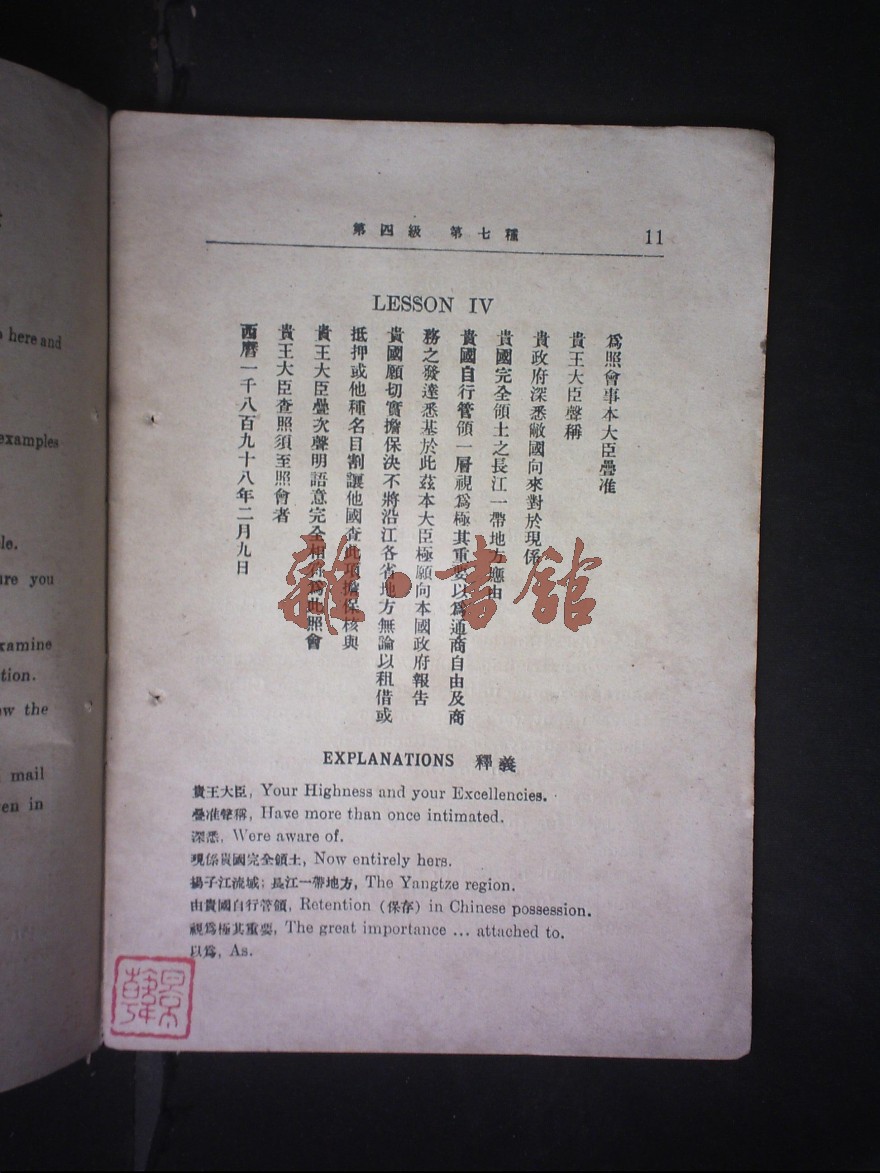 here and
examples
le.
ure you
xamine
tion.
ow the
mail
en in
第四級 第七種 11
LESSON IV
為照會事本大臣疊准
貴王大臣聲稱
貴政府深悉敝國向來對於現係
貴國完全領土之長江一帶地方應由
貴國自行管領一層視為極其重要以為通商自由及商
務之發達悉基於此茲本大臣極願向本國政府報告
貴國願切實擔保決不將沿江各省地方無論以租借或
抵押或他種名目割讓他國查此項擔保核與
貴王大臣疊次聲明語意完全相符為此照會
貴王大臣查照須至照會者
西曆一千八百九十八年二月九日
雜·書館
EXPLANATIONS 釋義
貴王大臣, Your Highness and your Excellencies.
疊准聲稱, Have more than once intimated.
深悉, Were aware of.
現係貴國完全領土, Now entirely hers.
揚子江流域; 長江一帶地方, The Yangtze region.
由貴國自行管領, Retention (保存) in Chinese possession.
視為極其重要, The great importance ... attached to.
以為, As.